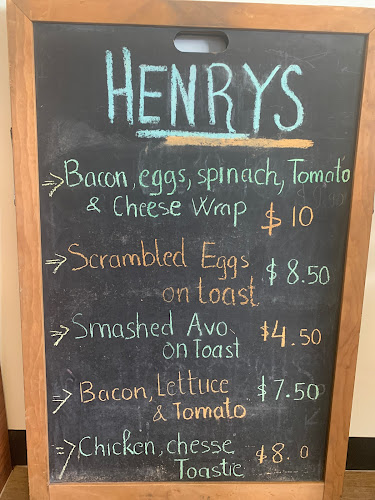 HENRYS
Bacon, eggs, spinach, Tomato
& Cheese Wrap $10
Scrambled Eggs
on toast $8.50
Smashed Avo
on Toast $4.50
Bacon, Lettuce
& Tomato $7.50
Chicken, chesse
Toastie $8. 0